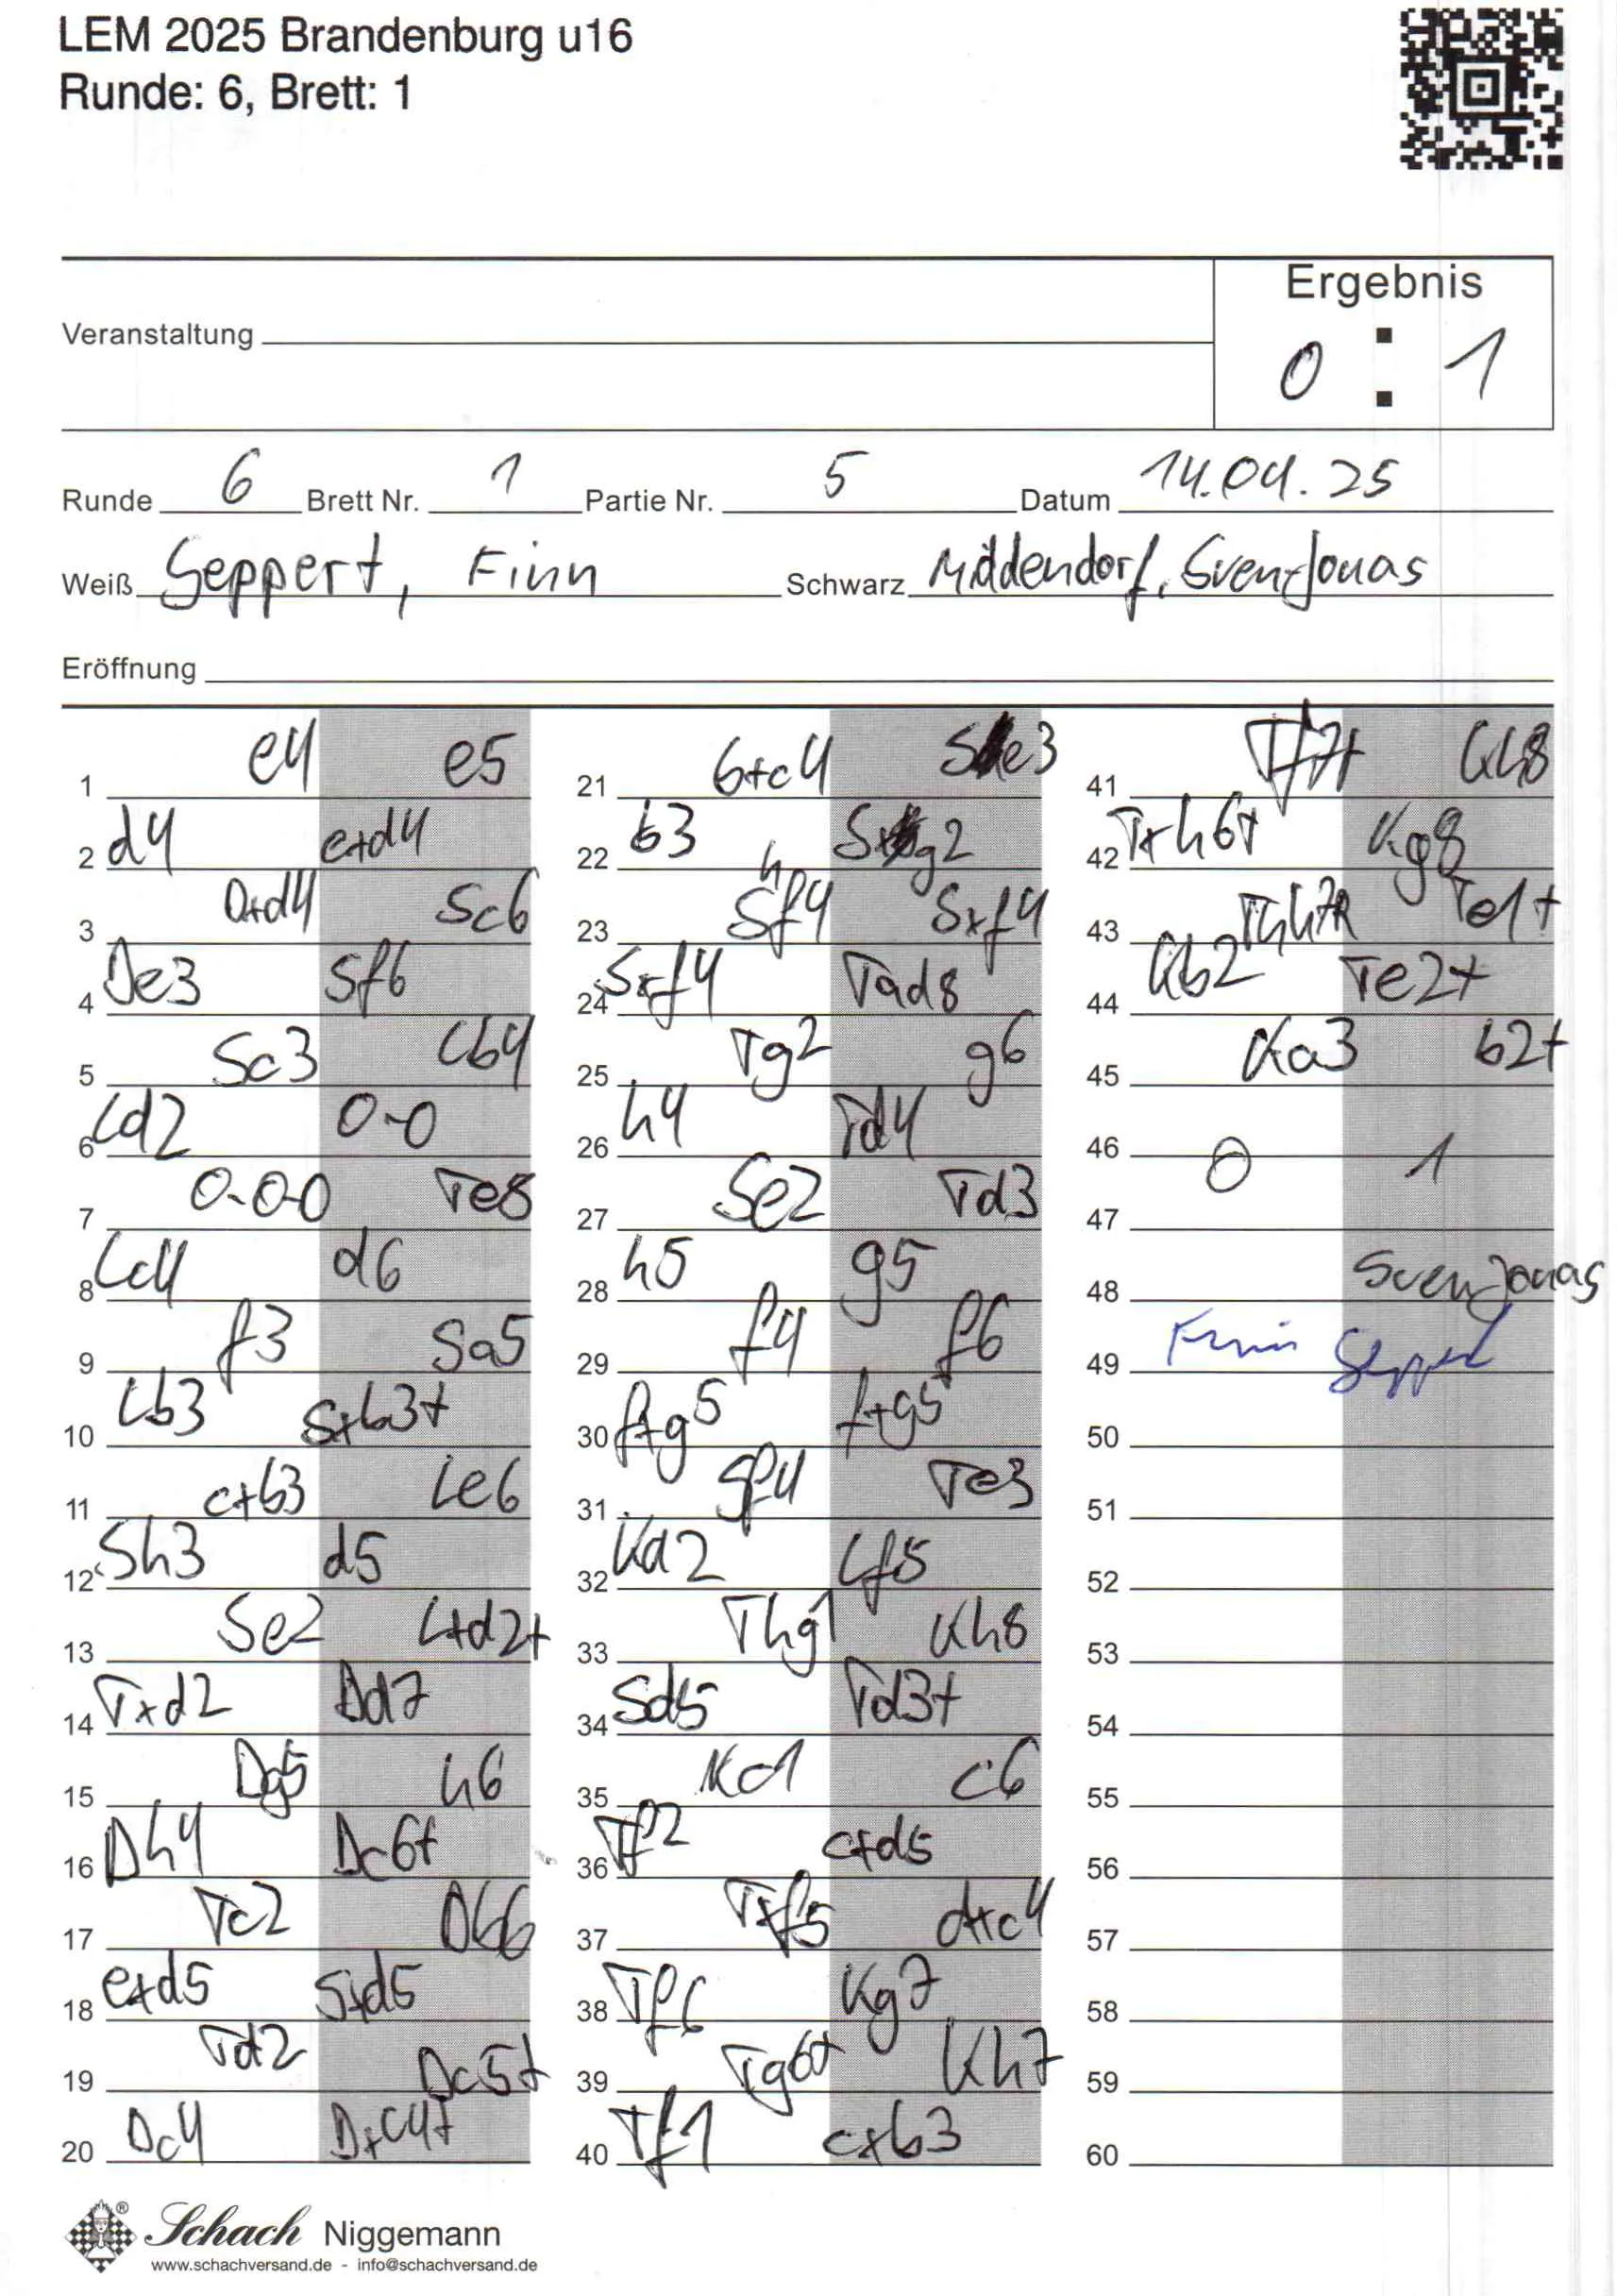 LEM 2025 Brandenburg u16
Runde: 6, Brett: 1
Ergebnis
Veranstaltung
0 : 1
Runde 6 Brett Nr. 1 Partie Nr. 5 Datum 14.04.25
Weiß Geppert, Finn Schwarz Middendorf, Sven-Jonas
Eröffnung
1 e4 e5
2 d4 exd4
3 Dxd4 Sc6
4 De3 Sf6
5 Sc3 Lb4
6 Ld2 0-0
7 0-0-0 Te8
8 Lc4 d6
9 f3 Sa5
10 Lb3 Sxb3+
11 cxb3 Le6
12 Sh3 d5
13 Se2 Lxd2+
14 Txd2 Dd7
15 Dg5 h6
16 Dh4 Dc6+
17 Tc2 Db6
18 exd5 Sxd5
19 Td2 Dc5+
20 Dc4 Dxc4+
21 bxc4 Se3
22 b3 Sxg2
23 Shf4 Sxf4
24 Sxf4 Tad8
25 Tg2 g6
26 h4 Td4
27 Se2 Td3
28 h5 g5
29 f4 f6
30 fxg5 fxg5
31 Sf4 Te3
32 Kd2 Lf5
33 Thg1 Kh8
34 Sd5 Td3+
35 Kc1 c6
36 Tf2 cxd5
37 Txf5 dxc4
38 Tf6 Kg7
39 Tg6+ Kh7
40 Tf1 cxb3
41 Tf7+ Kh8
42 Txh6+ Kg8
43 Thh7 Te1+
44 Kb2 Te2+
45 Ka3 b2+
46 0 1
47
48 Sven-Jonas
49 Finn Geppert
50
51
52
53
54
55
56
57
58
59
60
Schach Niggemann
www.schachversand.de - info@schachversand.de